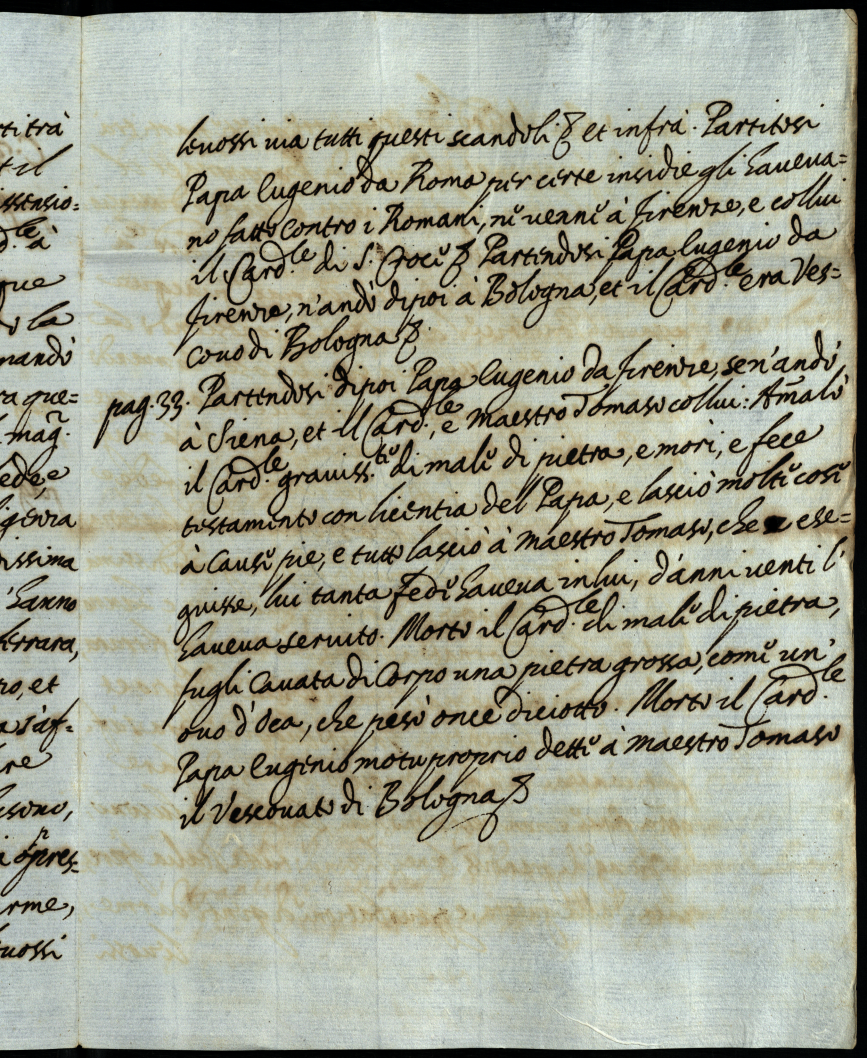 ti trà
t il
issensio=
d.le à
que
do la
mandò
ra que=
mag.r
fede, e
igenza
issima
hanno
ferrara,
ro, et
a s'af=
re
usono,
i oppres=
arme,
uossi
leuossi uia tutti questi scandoli. & et infrà. Partitosi
Papa Eugenio da Roma per certe insidie gli haueua=
no fatto contro i Romani, ne uenne à firenze, e collui
il Card.le di S. Croce & Partendosi Papa Eugenio da
firenze, n'andò dipoi à Bologna, et il Card.le era Ves=
couo di Bologna &.
pag. 33. Partendosi dipoi Papa Eugenio da firenze, se n'andò
à Siena, et il Card.le, e maestro Tomaso collui: Amalò
il Card.le grauiss.te di male di pietra, e morì, e fece
testamento con licentia del Papa, e lasciò molte cose
à cause pie, e tutto lasciò à maestro Tomaso, che ese=
guisse, lui tanta fede haueua in lui, d'anni uenti l'
haueua seruito. Morto il Card.le di male di pietra,
fugli cauata di corpo una pietra grossa, come un'
ouo d'Oca, che pesò once diciotto. Morto il Card.le
Papa Eugenio motu proprio dette à maestro Tomaso
il Vescouato di Bologna &